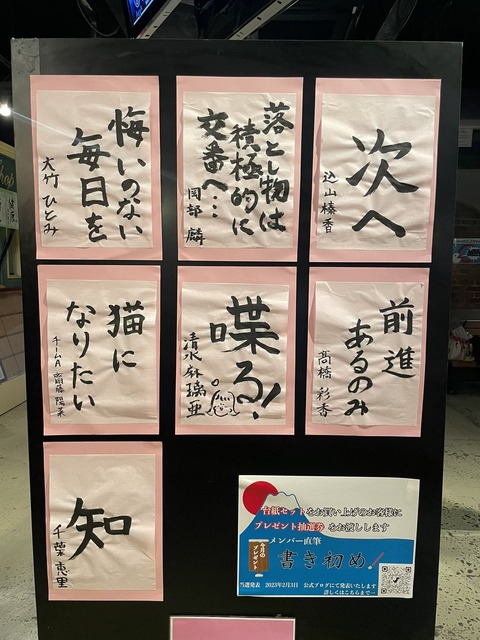 次へ
込山榛香
落とし物は
積極的に
交番へ…
岡部 麟
悔いのない
毎日を
大竹 ひとみ
前進
あるのみ
髙橋 彩香
喋る!
清水 麻璃亜
猫に
なりたい
チームA 齋藤 陽菜
知
千葉 恵里
台紙セットをお買い上げのお客様に
プレゼント抽選券をお渡しします
メンバー直筆
今月の
プレゼント
書き初め!
当選発表 2023年2月3日 公式ブログにて発表いたします
詳しくはこちらまで→